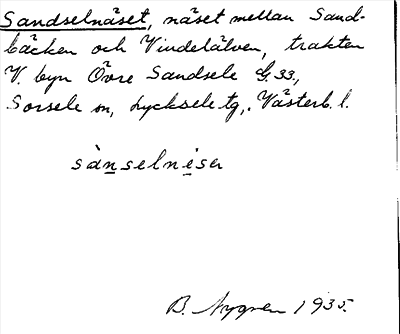 Sandselnäset, näset mellan Sand-
bäcken och Vindelälven, trakten
V. byn Övre Sandsele G.33,
Sorsele sn, Lycksele tg, Västerb. l.
sànselnesen
B. Nygren 1935.